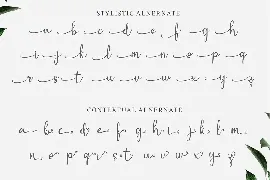 STYLISTIC ALNERNATE
a b c d e f g h
i j k l m n o p q
r s t u v w x y z
CONTEXTUAL ALNERNATE
a b c d e f g h i j k l m
n o p q r s t u v w x y z